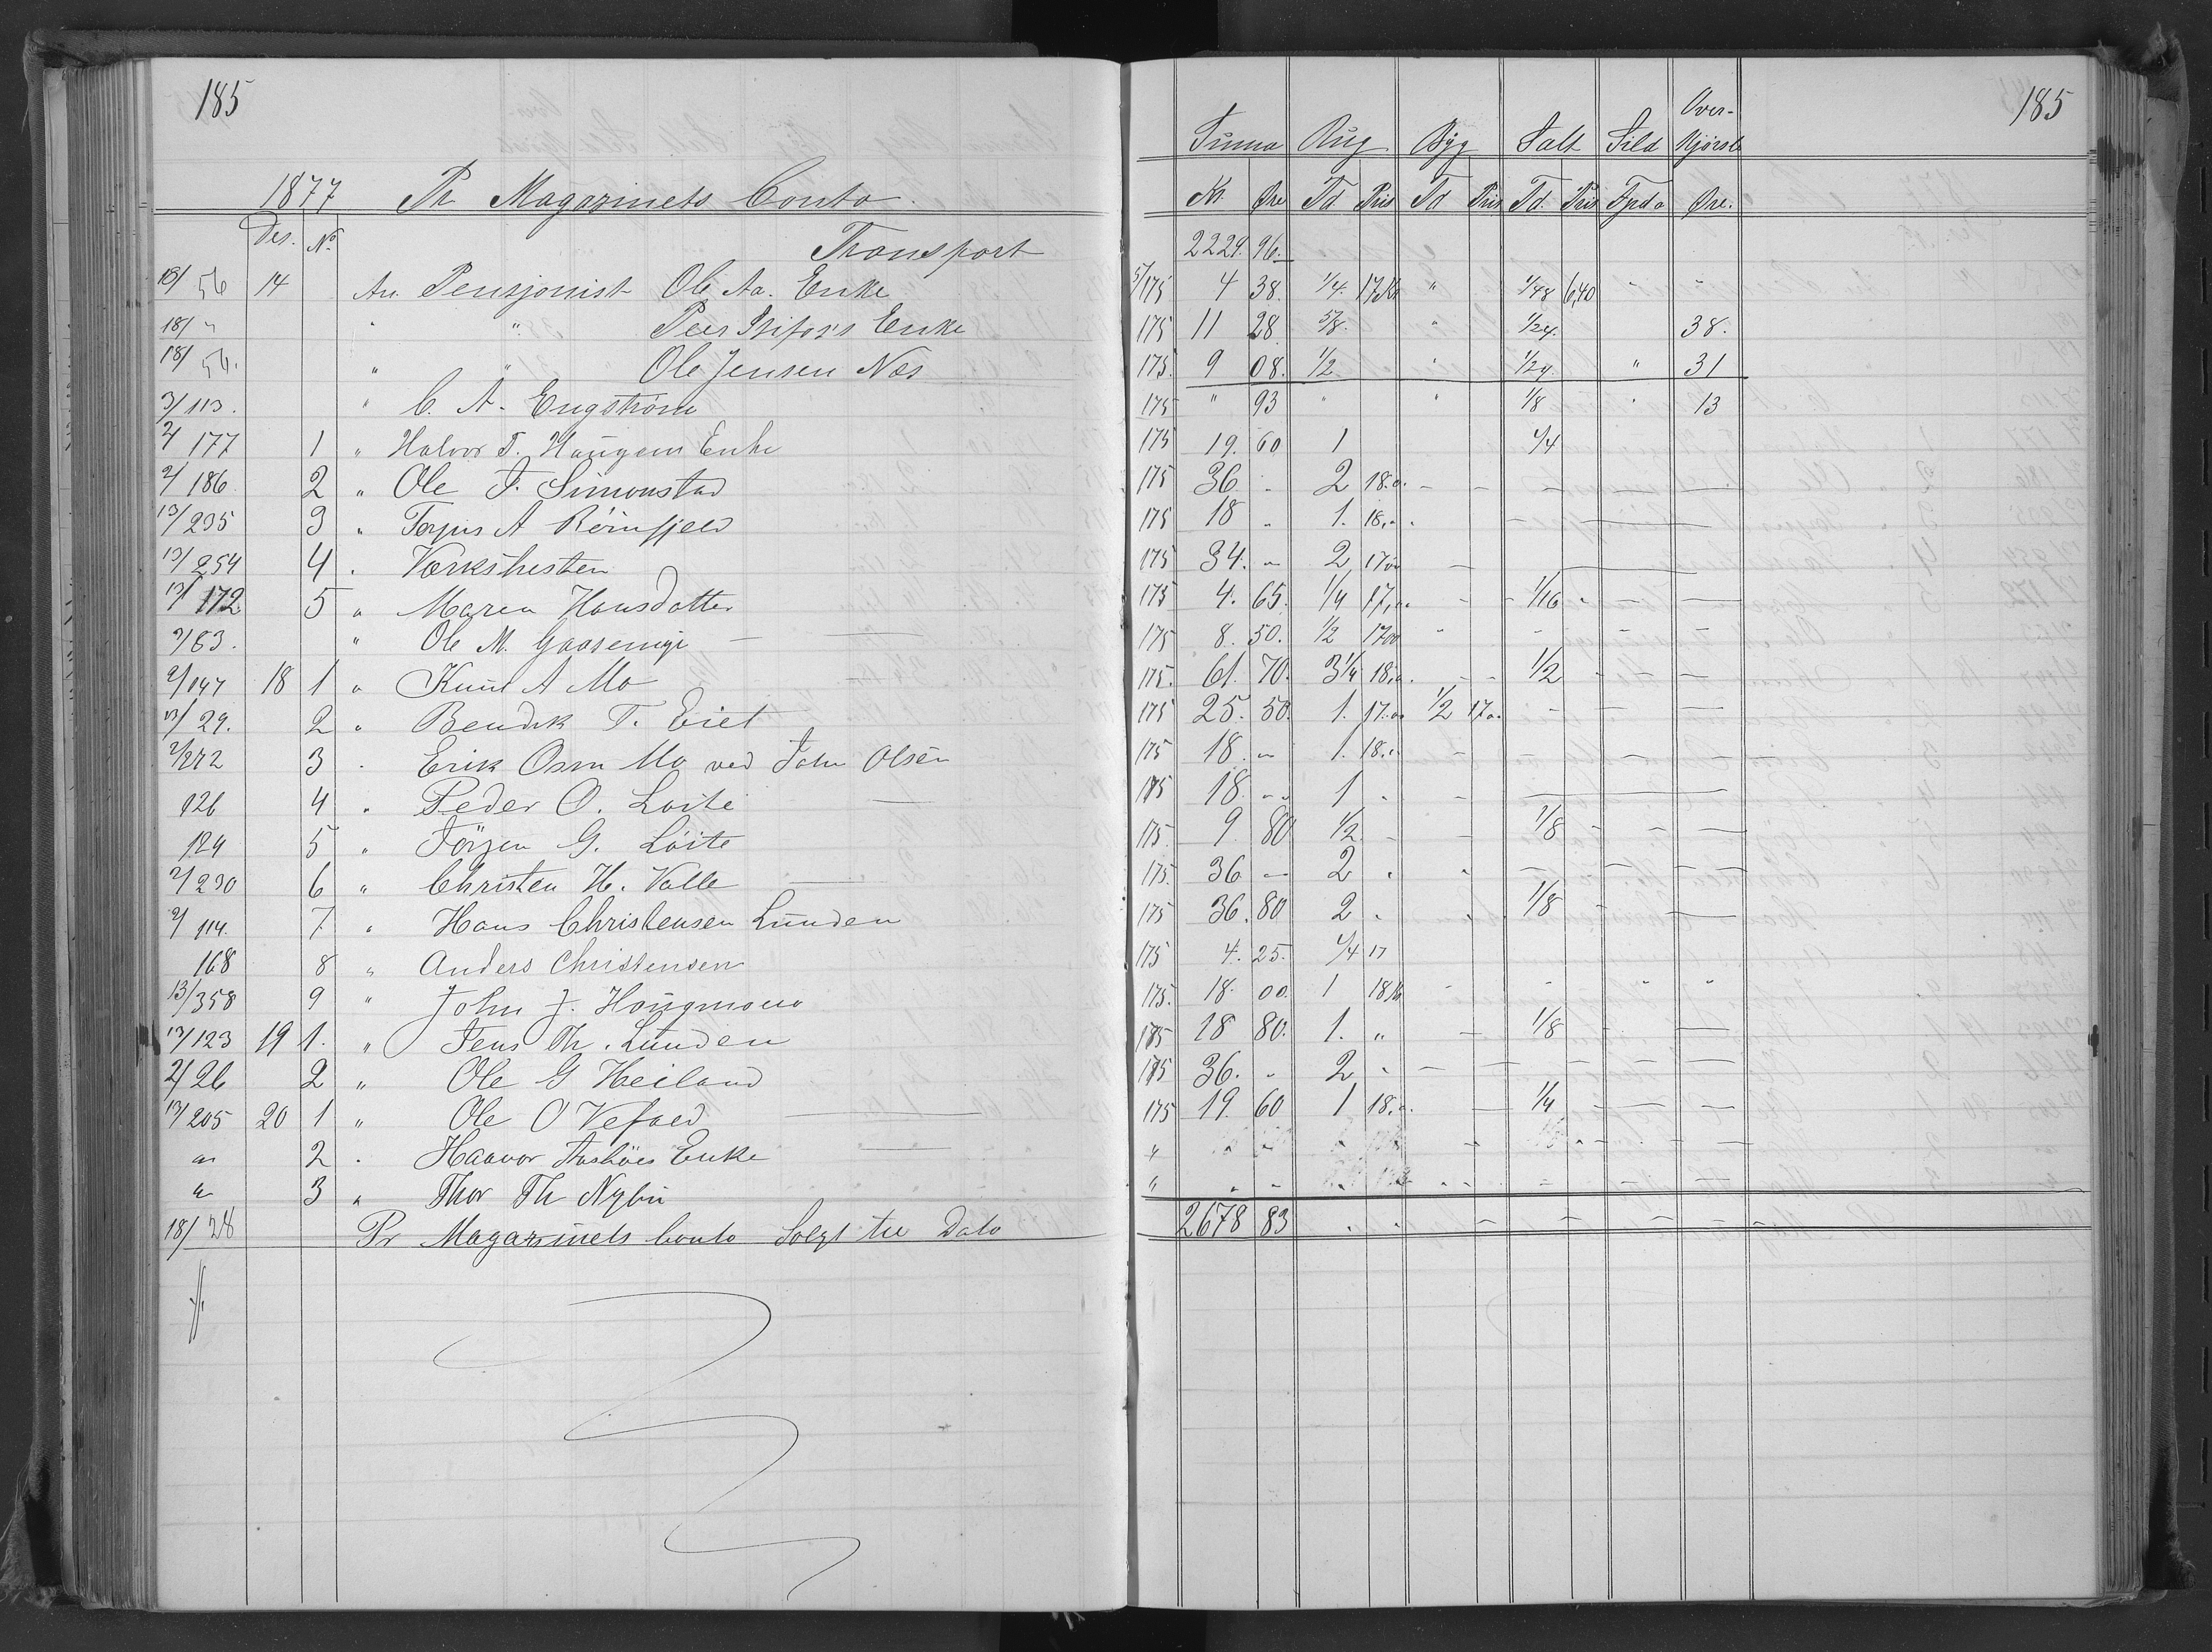 185
1877 Pr Magazinets Conto.
Des. No.
Transport
18/56 14 An Pensjonist Ole Aa. Enke
18/" " " Peer Enke
18/56. " " Ole Jensen Næs
3/113. " C. A. Engström
2/177 1 " Halvor T. Haugens Enke
2/186 2 " Ole J. Simonstad
13/235 3 " Terjus A Röinfjeld
13/254 4 " Værkshesten
13/172 5 " Maren Hansdatter
2/83. " Ole M. —
2/147 18 1 " Knud A Mo
13/29. 2 " Bendik T. Eiet
2/272 3 " Erik Osm Mo ved John Olsen
126 4 " Peder O. Löite —
124 5 " Jörgen G. Löite
2/230 6 " Christen H. Valle —
2/114. 7 " Hans Christensen Lunden
168 8 " Anders Christensen
13/358 9 " John J. Hougmoen
13/123 19 1. " Jens Th. Lunden
2/26 2 " Ole G Heiland
13/205 20 1 " Ole O Vefald —
" 2 " Haavor Enke —
" 3 " Thor Th Nybu
18/28 Pr Magazinets Conto Solgt til Dato
185
Summa Rug Byg Salt Sild Over-
Kjørsel
Kr. Øre Td. Pris Td Pris Td. Pris Øre.
2224. 96.
5/175 4 38. 1/4. 17 Kr " 1/48 6,40 " "
175 11 28 5/8. " 1/24. 38.
175. 9 08. 1/2 " 1/24. " 31
175 " 93 " " 1/8 " 13
175 19. 60 1 1/4
175 36 - 2 18.0. - - - - -
175 18 " 1. 18,- - - -
175 34. - 2 17 00 - -
175 4. 65. 1/4 17,00 - - 1/16 - - -
175 8. 50. 1/2 17 00 - - - -
175. 61. 70. 3 1/4 18,0. - - 1/2 - - -
175 25. 50. 1. 17.00 1/2 17 00 - - -
175 18. - 1. 18.- - - - - -
175 18. - 1 - - -
175. 9. 80 1/2 - - 1/8 - - -
175. 36 - 2 " " - - - -
175 36. 80 2 " " 1/8 - -
175 4. 25. 1/4 17
175. 18. 00. 1 18 Kr - - " "
175 18 80. 1. " - 1/8 - -
175 36. - 2 " - - - - -
175 19. 60 1 18,0. - 1/4 - - -
2678 83 - - - - - -